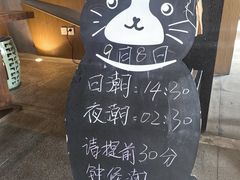 9月8日
日潮:14:30
夜潮:02:30
请提前30分
钟候潮